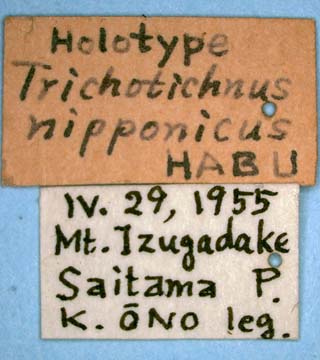 Holotype
Trichotichnus
nipponicus
HABU
IV. 29, 1955
Mt. Izugadake
Saitama P.
K. ŌNO leg.